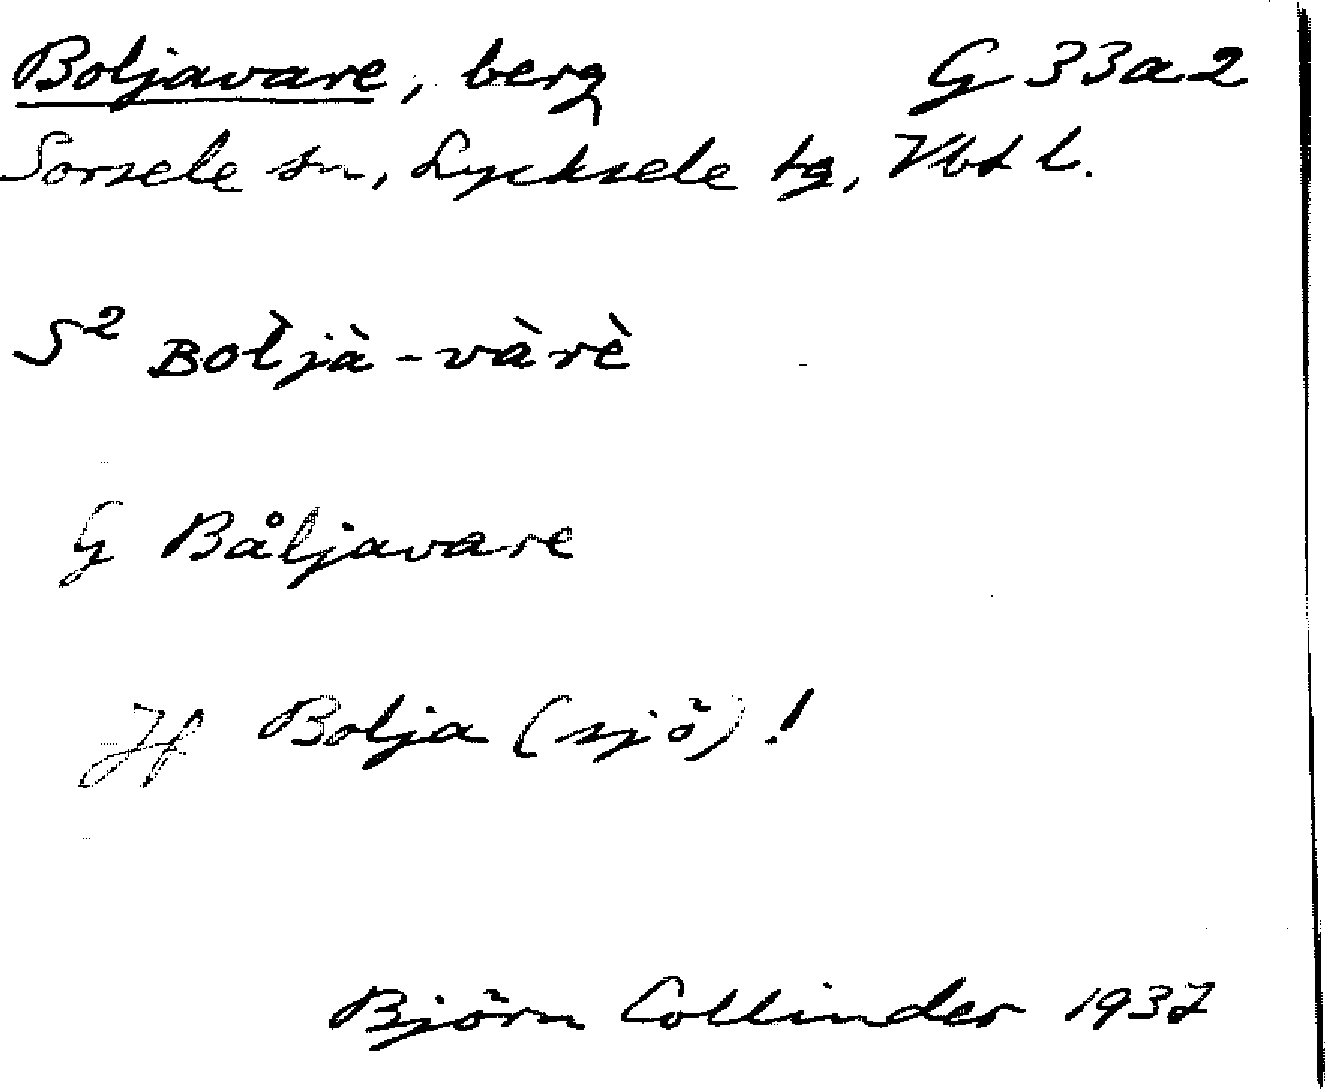 Boljavare, berg G 33a2
Sorsele sn, Lycksele tg, Vbt l.
S² Bòljà-vàrè
G Båljavare
Jf Bolja (sjö)!
Björn Collinder 1937